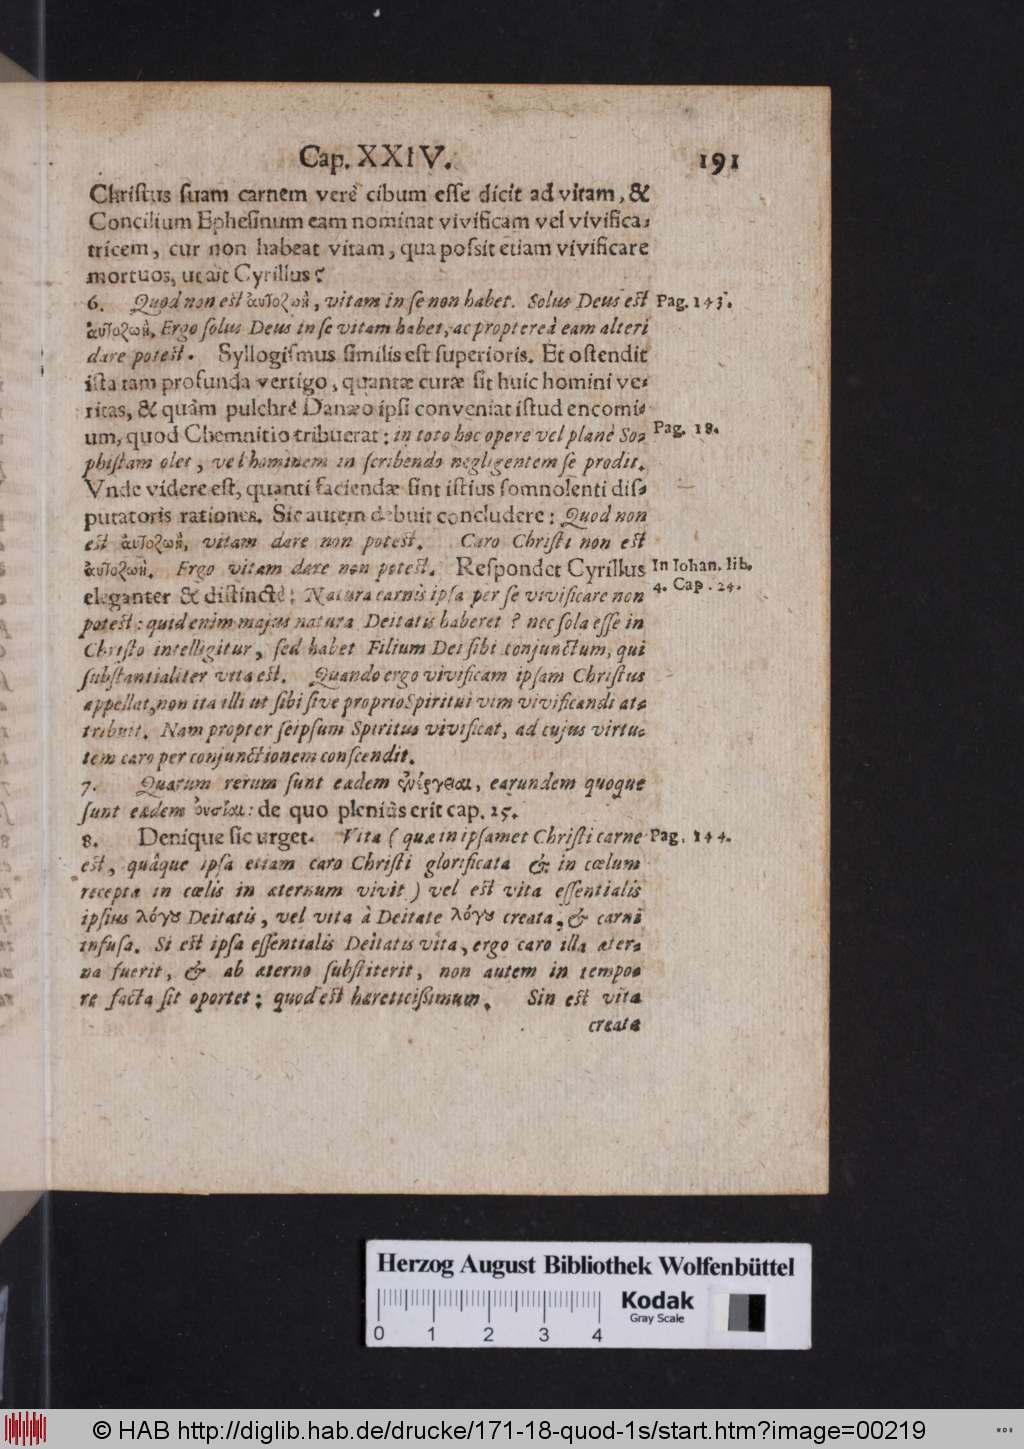 Cap. XXIV. 191
Chriſtus ſuam carnem verè cibum eſſe dicit ad vitam, &
Concilium Epheſinum eam nominat vivificam vel vivifica-
tricem, cur non habeat vitam, qua poſsit etiam vivificare
mortuos, ut ait Cyrillus?
6. Quod non est ἀυτοζωὴ, vitam in ſe non habet. Solus Deus est Pag. 143.
ἀυτοζωὴ. Ergo ſolus Deus in ſe vitam habet, ac proptereà eam alteri
dare potest. Syllogiſmus ſimilis eſt ſuperioris. Et oſtendit
iſta tam profunda vertigo, quantæ curæ ſit huic homini ve-
ritas, & quàm pulchrè Danæo ipſi conveniat iſtud encomi-
um, quod Chemnitio tribuerat: in toto hoc opere vel planè So- Pag. 18.
phiſtam olet, vel hominem in ſcribendo negligentem ſe prodit.
Vnde videre eſt, quanti faciendæ ſint iſtius ſomnolenti diſ-
putatoris rationes. Sic autem debuit concludere: Quod non
est ἀυτοζωὴ, vitam dare non potest. Caro Chriſti non est
ἀυτοζωὴ. Ergo vitam dare non potest. Reſpondet Cyrillus In Iohan. lib.
eleganter & diſtinctè: Natura carnis ipſa per ſe vivificare non 4. Cap. 24.
potest: quid enim majus natura Deitatis haberet? nec ſola eſſe in
Chriſto intelligitur, ſed habet Filium Dei ſibi conjunctum, qui
ſubſtantialiter vita est. Quando ergo vivificam ipſam Chriſtus
appellat, non ita illi ut ſibi ſive proprio Spiritui vim vivificandi at-
tribuit. Nam propter ſeipſum Spiritus vivificat, ad cujus virtu-
tem caro per conjunctionem conſcendit.
7. Quarum rerum ſunt eadem ἐνέργειαι, earundem quoque
ſunt eadem ὀυσίαι: de quo pleniùs erit cap. 25.
8. Denique ſic urget. Vita (quæ in ipſamet Chriſti carne Pag. 144.
est, quâque ipſa etiam caro Chriſti glorificata & in cœlum
recepta in cœlis in æternum vivit) vel est vita eſſentialis
ipſius λόγȣ Deitatis, vel vita à Deitate λόγȣ creata, & carni
infuſa. Si est ipſa eſſentialis Deitatis vita, ergo caro illa æter-
na fuerit, & ab æterno ſubſtiterit, non autem in tempo-
re facta ſit oportet; quod est hæreticiſsimum. Sin est vita
creata
Herzog August Bibliothek Wolfenbüttel
Kodak
Gray Scale
0 1 2 3 4
© HAB http://diglib.hab.de/drucke/171-18-quod-1s/start.htm?image=00219